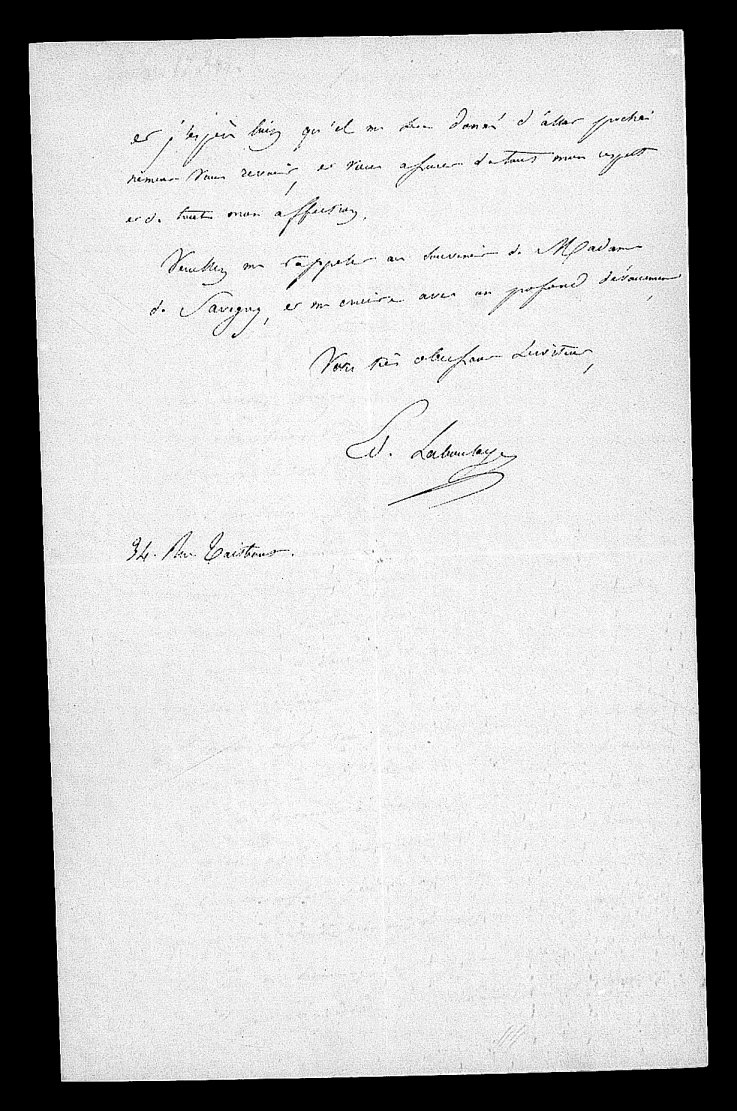 et j'espère bien qu'il me sera donné d'aller prochai
nement vous revoir, et vous assurer de tout mon respect
et de toute mon affection.
Veuillez me rappeler au souvenir de Madame
de Savigny, et me croire avec un profond dévouement,
Votre très obéissant serviteur,
Ed. Laboulaye
34. Rue Taitbout.